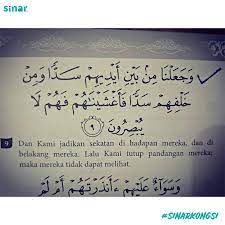 sinar
وَجَعَلْنَا مِنۢ بَيْنِ أَيْدِيهِمْ سَدًّا وَمِنْ
خَلْفِهِمْ سَدًّا فَأَغْشَيْنَٰهُمْ فَهُمْ لَا
يُبْصِرُونَ ٩
9 Dan Kami jadikan sekatan di hadapan mereka, dan di
belakang mereka. Lalu Kami tutup pandangan mereka;
maka mereka tidak dapat melihat.
وَسَوَآءٌ عَلَيْهِمْ ءَأَنذَرْتَهُمْ أَمْ لَمْ
#SINARKONGSI